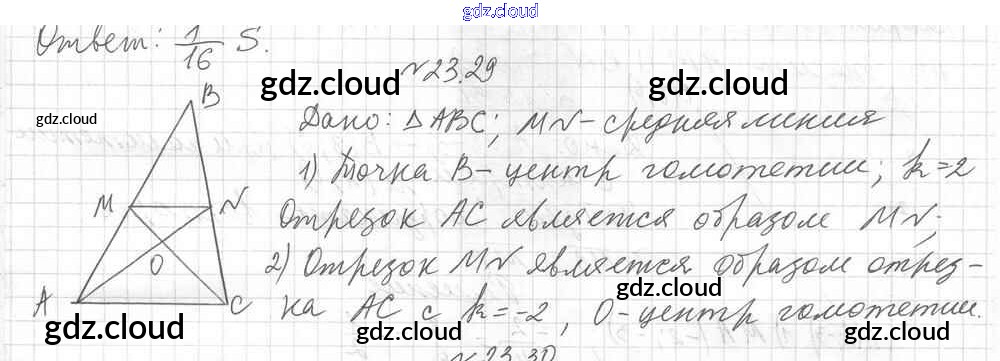 gdz.cloud
Ответ: 1/16 S.
№23.29
gdz.cloud
gdz.cloud
gdz.cloud
B
Дано: △ABC; MN - средняя линия
1) Точка B - центр гомотетии; k=2
M N Отрезок AC является образом MN;
O
2) Отрезок MN является образом отрез-
A C ка AC с k=-2, O-центр гомотетии.
gdz.cloud
gdz.cloud
gdz.cloud
gdz.cloud
№23.30